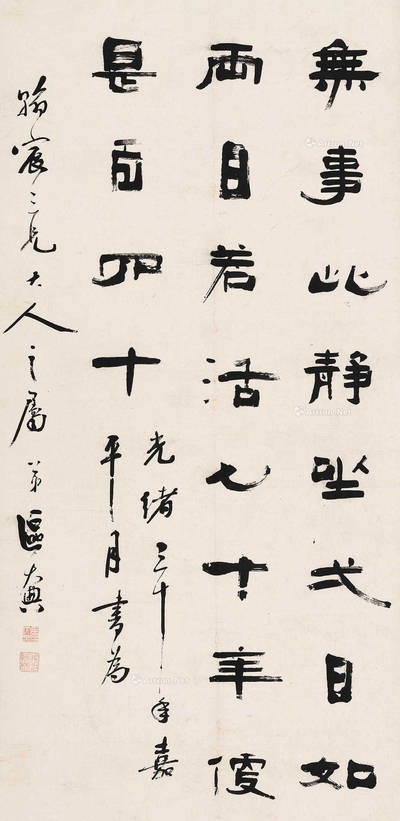 無事此靜坐弌日如
兩日若活七十年便
是百四十
光緒三十一年嘉
平月書為
翰宸三兄大人之屬 弟區大典